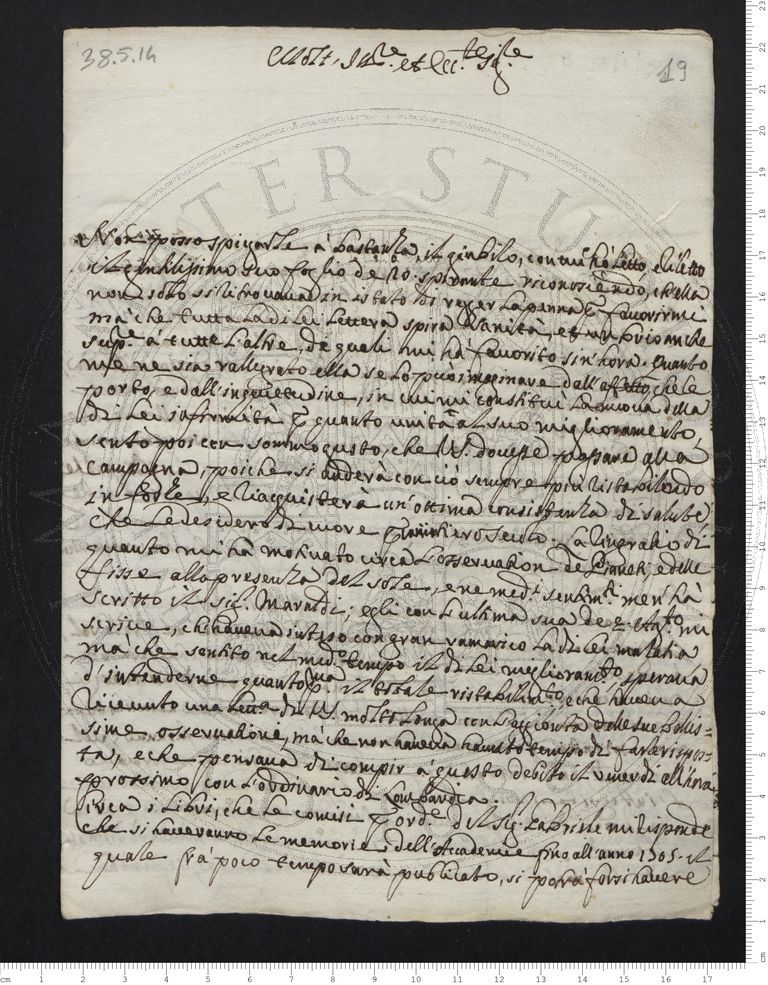 38.5.14
19
Molt. Ill.re et Ecc.te Sig.re
Non posso spiegarle à bastanza, il giubilo, con cui hò letto, e riletto
il gentilissimo suo foglio de 20. spirante riconoscendo, ch'ella
non solo si ritrovava in istato di regger la penna p favorirmi
mà che tutta la di lei lettera spira sanità, et un brio anche
sup.re à tutte l'altre, de quali mi hà favorito sin'hora. Quanto
me ne sia rallegrato ella se lo può imaginare dall'affetto, che le
porto, e dall'inquietudine, in cui mi constituì la nuova della
di lei infirmità p quanto unita al suo miglioramento,
sento poi con sommo gusto, che V.S. dovesse passare alla
campagna, poiche si anderà con ciò sempre più ristabilendo
in forze, e riacquisterà un'ottima consistenza di salute
che le desidero di cuore p un'intiero secolo. La ringratio di
quanto mi hà motivato circa l'osservation de Pianeti, e delle
fisse alla presenza del sole, e ne med.i sentim.ti men'hà
scritto il sig. Maraldi; egli con l'ultima sua de 2 Ag.to mi
scrive, ch'haveva inteso con gran ramarico la di lei malatia
mà che sentito nel med.o tempo il di lei miglioram.to, sperava
d'intenderne quanto p.ma il totale ristabilim.to, e che haveva
ricevuto una lett.a di V.S. molto longa con l'aggionta delle sue bellis=
sime osservationi, mà che non haveva havuto tempo di farle rispos=
ta, e che pensava di compir à questo debito il venerdì all'hora
prossimo con l'ordinario di Lombardia.
Circa i libri, che le comisi p ord.e del Sig. la Hire mi risponde
che si haveranno le memorie dell'Accademie fino all'anno 1705. il
quale frà poco tempo sarà publicato, si potrà forsi havere